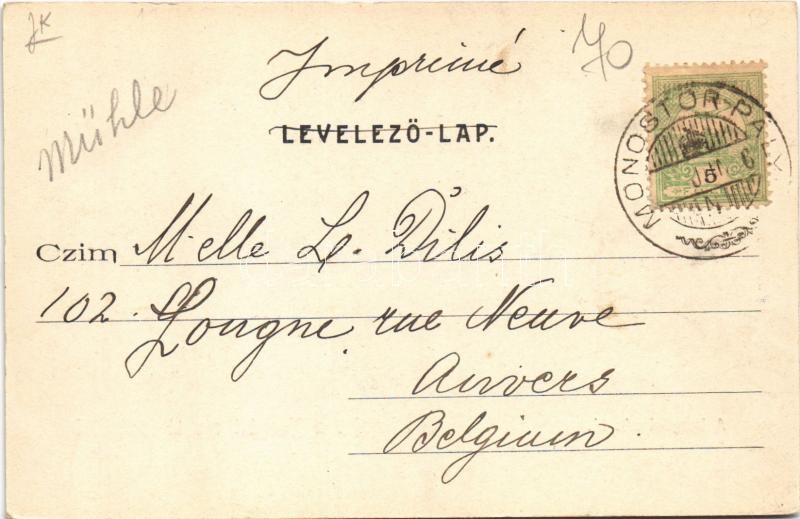 JK
Imprimé
70
Mühle
LEVELEZŐ-LAP.
MONOSTOR-PÁLYI
Czim Melle L. Dilis
102. Longue rue Neuve
Anvers
Belgium.